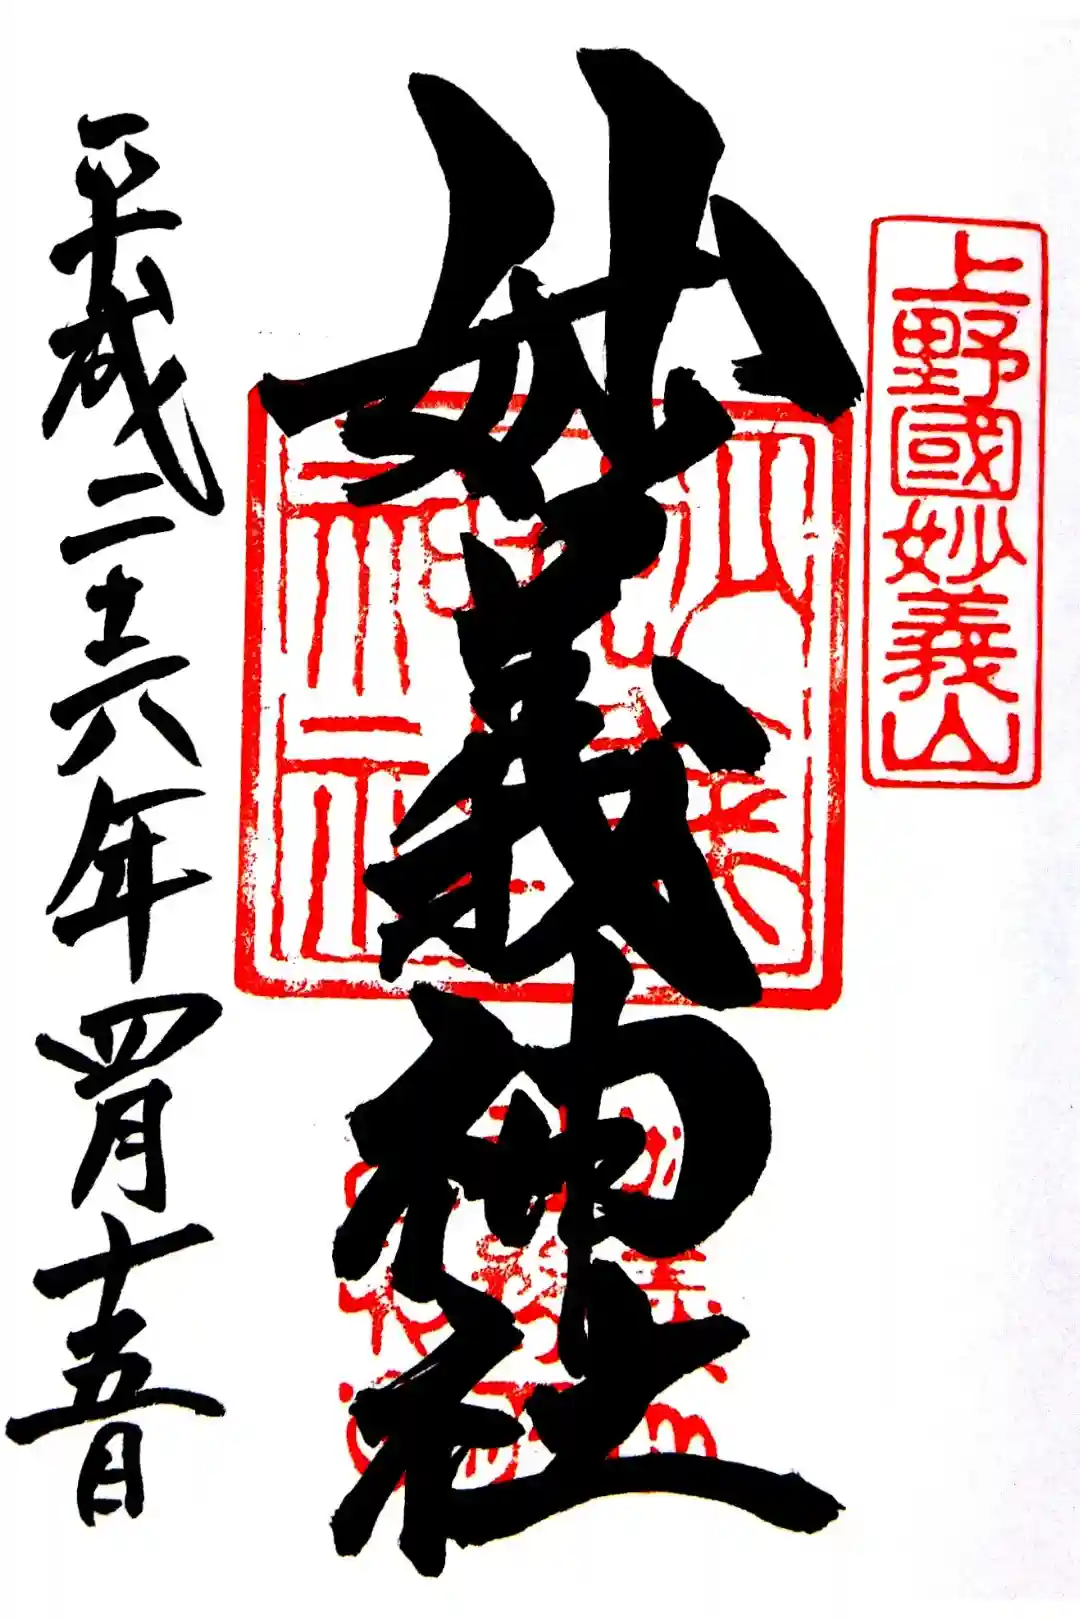 上野國妙義山
妙義神社
平成二十六年四月十五日